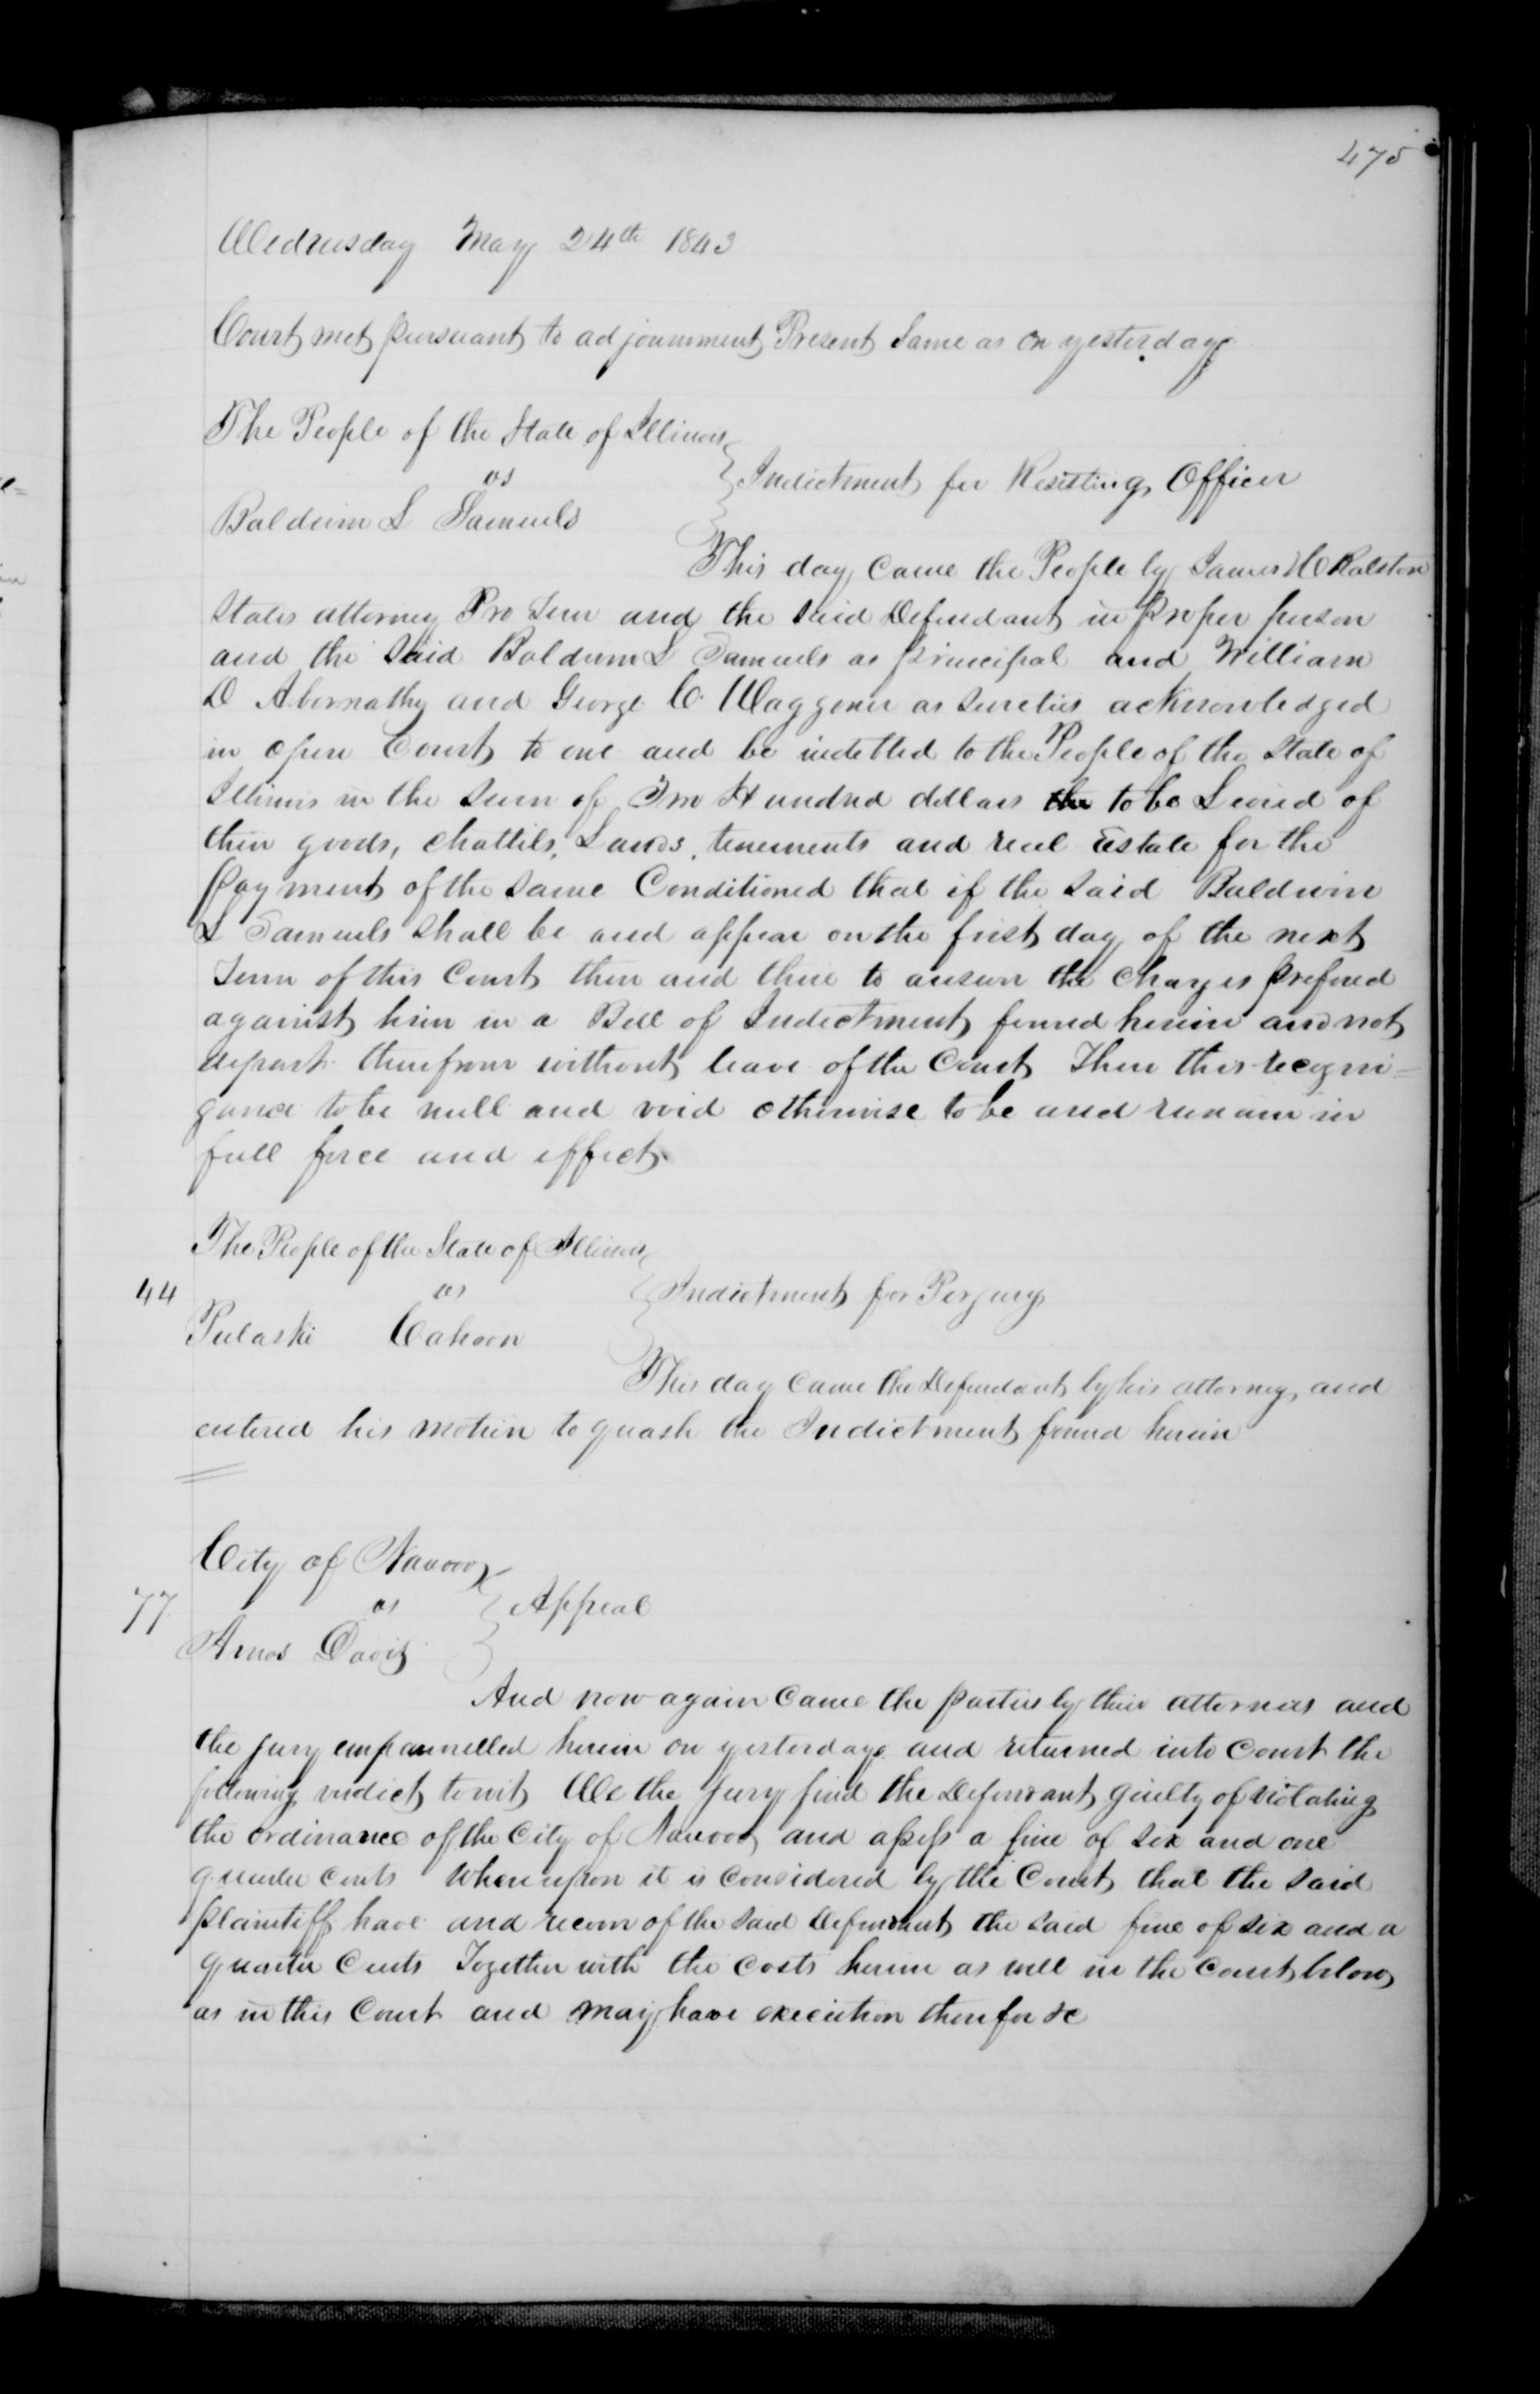 475
Wednesday May 24th 1843
Court met pursuant to adjournment Present Same as on yesterday
The People of the State of Illinois
vs
Indictment for Resisting Officer
Baldwin L Samuels
This day came the People by James H Ralston
States attorney Pro Tem and the said Defendant in proper person
and the said Baldwin L Samuels as principal and William
D Abernathy and George C. Waggoner as sureties acknowledged
in open Court to owe and be indebted to the People of the State of
Illinois in the sum of Two Hundred dollars the to be Levied of
their goods, chattils, Lands, tenements and reel Estate for the
payment of the same Conditioned that if the said Baldwin
L Samuels shall be and appear on the first day of the next
Term of this Court then and there to answer the charges prefered
against him in a Bill of Indictment found herein and not
depart therefrom without leave of the Court Then this recogni=
zance to be null and void otherwise to be and remain in
full force and effect.
The People of the State of Illinois
44
vs
Indictment for Perjury
Pulaski Cahoon
This day came the Defendant by his attorney and
entered his motion to quash the Indictment found herein
City of Nauvoo
77
vs
Appeal
Amos Davis
And now again came the parties by their attornies and
the jury empannelled herein on yesterday and returned into Court the
following verdict towit We the Jury find the Defendant guilty of violating
the ordinance of the City of Nauvoo and assess a fine of six and one
quarter cents Whereupon it is considered by the Court that the said
plaintiff have and recover of the said Defendant the said fine of six and a
quarter Cents Together with the costs herein as well in the Court below
as in this Court and may have execution therefor &c